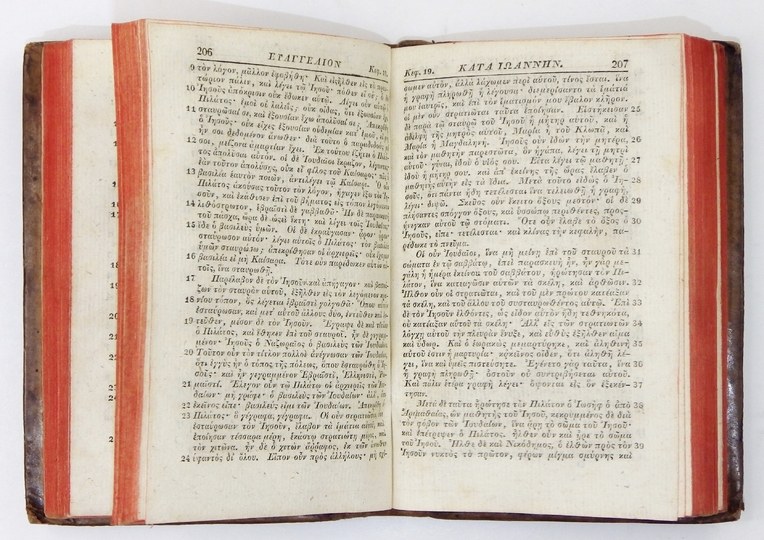 206 ΕΥΑΓΓΕΛΙΟΝ Κεφ. 19.
9 τὸν λόγον, μᾶλλον ἐφοβήθη· Καὶ εἰσῆλθεν εἰς τὸ πραι-
τώριον πάλιν, καὶ λέγει τῷ Ἰησοῦ· πόθεν εἶ σύ; ὁ δὲ
10 Ἰησοῦς ἀπόκρισιν οὐκ ἔδωκεν αὐτῷ. Λέγει οὖν αὐτῷ ὁ
Πιλάτος· ἐμοὶ οὐ λαλεῖς; οὐκ οἶδας, ὅτι ἐξουσίαν ἔχω
11 σταυρῶσαί σε, καὶ ἐξουσίαν ἔχω ἀπολῦσαί σε; Ἀπεκρίθη
ὁ Ἰησοῦς· οὐκ εἶχες ἐξουσίαν οὐδεμίαν κατ' ἐμοῦ, εἰ
μή σοι δεδομένον ἄνωθεν· διὰ τοῦτο ὁ παραδιδούς
12 σοι, μείζονα ἁμαρτίαν ἔχει. Ἐκ τούτου ἐζήτει ὁ Πιλά-
τος ἀπολῦσαι αὐτόν. οἱ δὲ Ἰουδαῖοι ἔκραζον, λέγοντες·
ἐὰν τοῦτον ἀπολύσῃς, οὐκ εἶ φίλος τοῦ Καίσαρος· πᾶς ὁ
13 βασιλέα ἑαυτὸν ποιῶν, ἀντιλέγει τῷ Καίσαρι. Ὁ οὖν
Πιλάτος ἀκούσας τοῦτον τὸν λόγον, ἤγαγεν ἔξω τὸν Ἰη-
σοῦν, καὶ ἐκάθισεν ἐπὶ τοῦ βήματος εἰς τόπον λεγόμενον
14 λιθόστρωτον, ἑβραϊστὶ δὲ γαββαθᾶ· Ἦν δὲ παρασκευὴ
τοῦ πάσχα, ὥρα δὲ ὡσεὶ ἕκτη· καὶ λέγει τοῖς Ἰουδαίοις·
15 ἴδε ὁ βασιλεὺς ὑμῶν. Οἱ δὲ ἐκραύγασαν· ἆρον ἆρον,
σταύρωσον αὐτόν· λέγει αὐτοῖς ὁ Πιλάτος· τὸν βασιλέα
ὑμῶν σταυρώσω; ἀπεκρίθησαν οἱ ἀρχιερεῖς· οὐκ ἔχομεν
16 βασιλέα εἰ μὴ Καίσαρα. Τότε οὖν παρέδωκεν αὐτὸν αὐ-
τοῖς, ἵνα σταυρωθῇ.
17 Παρέλαβον δὲ τὸν Ἰησοῦν καὶ ἀπήγαγον· καὶ βαστά-
ζων τὸν σταυρὸν αὐτοῦ, ἐξῆλθεν εἰς τὸν λεγόμενον κρα-
18 νίου τόπον, ὃς λέγεται ἑβραϊστὶ γολγοθᾶ· Ὅπου αὐτὸν
ἐσταύρωσαν, καὶ μετ' αὐτοῦ ἄλλους δύο, ἐντεῦθεν καὶ ἐν-
19 τεῦθεν, μέσον δὲ τὸν Ἰησοῦν. Ἔγραψε δὲ καὶ τίτλον
ὁ Πιλάτος, καὶ ἔθηκεν ἐπὶ τοῦ σταυροῦ. ἦν δὲ γεγραμ-
μένον· Ἰησοῦς ὁ Ναζωραῖος ὁ βασιλεὺς τῶν Ἰουδαίων.
20 Τοῦτον οὖν τὸν τίτλον πολλοὶ ἀνέγνωσαν τῶν Ἰουδαίων,
ὅτι ἐγγὺς ἦν ὁ τόπος τῆς πόλεως, ὅπου ἐσταυρώθη ὁ Ἰη-
σοῦς· καὶ ἦν γεγραμμένον Ἑβραϊστὶ, Ἑλληνιστὶ, Ῥω-
21 μαϊστί. Ἔλεγον οὖν τῷ Πιλάτῳ οἱ ἀρχιερεῖς τῶν Ἰου-
δαίων· μὴ γράφε· ὁ βασιλεὺς τῶν Ἰουδαίων· ἀλλ' ὅτι
22 ἐκεῖνος εἶπε· βασιλεύς εἰμι τῶν Ἰουδαίων. Ἀπεκρίθη ὁ
23 Πιλάτος· ὃ γέγραφα, γέγραφα. Οἱ οὖν στρατιῶται ὅτε
ἐσταύρωσαν τὸν Ἰησοῦν, ἔλαβον τὰ ἱμάτια αὐτοῦ, καὶ
ἐποίησαν τέσσαρα μέρη, ἑκάστῳ στρατιώτῃ μέρος, καὶ
τὸν χιτῶνα. ἦν δὲ ὁ χιτὼν ἄῤῥαφος, ἐκ τῶν ἄνωθεν
24 ὑφαντὸς δι' ὅλου. Εἶπον οὖν πρὸς ἀλλήλους· μὴ σχί-
Κεφ. 19. ΚΑΤΑ ΙΩΑΝΝΗΝ. 207
σωμεν αὐτὸν, ἀλλὰ λάχωμεν περὶ αὐτοῦ, τίνος ἔσται. ἵνα
ἡ γραφὴ πληρωθῇ ἡ λέγουσα· διεμερίσαντο τὰ ἱμάτιά
μου ἑαυτοῖς, καὶ ἐπὶ τὸν ἱματισμόν μου ἔβαλον κλῆρον.
οἱ μὲν οὖν στρατιῶται ταῦτα ἐποίησαν. Εἱστήκεισαν 25
δὲ παρὰ τῷ σταυρῷ τοῦ Ἰησοῦ ἡ μήτηρ αὐτοῦ, καὶ ἡ
ἀδελφὴ τῆς μητρὸς αὐτοῦ, Μαρία ἡ τοῦ Κλωπᾶ, καὶ
Μαρία ἡ Μαγδαληνή. Ἰησοῦς οὖν ἰδὼν τὴν μητέρα, 26
καὶ τὸν μαθητὴν παρεστῶτα, ὃν ἠγάπα, λέγει τῇ μητρὶ
αὑτοῦ· γύναι, ἰδοὺ ὁ υἱός σου. Εἶτα λέγει τῷ μαθητῇ· 27
ἰδοὺ ἡ μήτηρ σου. καὶ ἀπ' ἐκείνης τῆς ὥρας ἔλαβεν ὁ
μαθητὴς αὐτὴν εἰς τὰ ἴδια. Μετὰ τοῦτο εἰδὼς ὁ Ἰη- 28
σοῦς, ὅτι πάντα ἤδη τετέλεσται ἵνα τελειωθῇ ἡ γραφὴ,
λέγει· διψῶ. Σκεῦος οὖν ἔκειτο ὄξους μεστόν· οἱ δὲ 29
πλήσαντες σπόγγον ὄξους, καὶ ὑσσώπῳ περιθέντες, προσ-
ήνεγκαν αὐτοῦ τῷ στόματι. Ὅτε οὖν ἔλαβε τὸ ὄξος ὁ 30
Ἰησοῦς, εἶπε· τετέλεσται· καὶ κλίνας τὴν κεφαλὴν, πα-
ρέδωκε τὸ πνεῦμα.
Οἱ οὖν Ἰουδαῖοι, ἵνα μὴ μείνῃ ἐπὶ τοῦ σταυροῦ τὰ 31
σώματα ἐν τῷ σαββάτῳ, ἐπεὶ παρασκευὴ ἦν, ἦν γὰρ με-
γάλη ἡ ἡμέρα ἐκείνου τοῦ σαββάτου, ἠρώτησαν τὸν Πι-
λάτον, ἵνα κατεαγῶσιν αὐτῶν τὰ σκέλη, καὶ ἀρθῶσιν. 32
Ἦλθον οὖν οἱ στρατιῶται, καὶ τοῦ μὲν πρώτου κατέαξαν
τὰ σκέλη, καὶ τοῦ ἄλλου τοῦ συσταυρωθέντος αὐτῷ. Ἐπὶ 33
δὲ τὸν Ἰησοῦν ἐλθόντες, ὡς εἶδον αὐτὸν ἤδη τεθνηκότα,
οὐ κατέαξαν αὐτοῦ τὰ σκέλη· Ἀλλ' εἷς τῶν στρατιωτῶν 34
λόγχῃ αὐτοῦ τὴν πλευρὰν ἔνυξε, καὶ εὐθὺς ἐξῆλθεν αἷμα
καὶ ὕδωρ. Καὶ ὁ ἑωρακὼς μεμαρτύρηκε, καὶ ἀληθινὴ 35
αὐτοῦ ἐστιν ἡ μαρτυρία· κἀκεῖνος οἶδεν, ὅτι ἀληθῆ λέ-
γει, ἵνα καὶ ὑμεῖς πιστεύσητε. Ἐγένετο γὰρ ταῦτα, ἵνα 36
ἡ γραφὴ πληρωθῇ· ὀστοῦν οὐ συντριβήσεται αὐτοῦ.
Καὶ πάλιν ἑτέρα γραφὴ λέγει· ὄψονται εἰς ὃν ἐξεκέν- 37
τησαν.
Μετὰ δὲ ταῦτα ἠρώτησε τὸν Πιλάτον ὁ Ἰωσὴφ ὁ ἀπὸ 38
Ἀριμαθαίας, ὢν μαθητὴς τοῦ Ἰησοῦ, κεκρυμμένος δὲ διὰ
τὸν φόβον τῶν Ἰουδαίων, ἵνα ἄρῃ τὸ σῶμα τοῦ Ἰησοῦ·
καὶ ἐπέτρεψεν ὁ Πιλάτος. ἦλθεν οὖν καὶ ἦρε τὸ σῶμα
τοῦ Ἰησοῦ. Ἦλθε δὲ καὶ Νικόδημος, ὁ ἐλθὼν πρὸς τὸν 39
Ἰησοῦν νυκτὸς τὸ πρῶτον, φέρων μίγμα σμύρνης καὶ